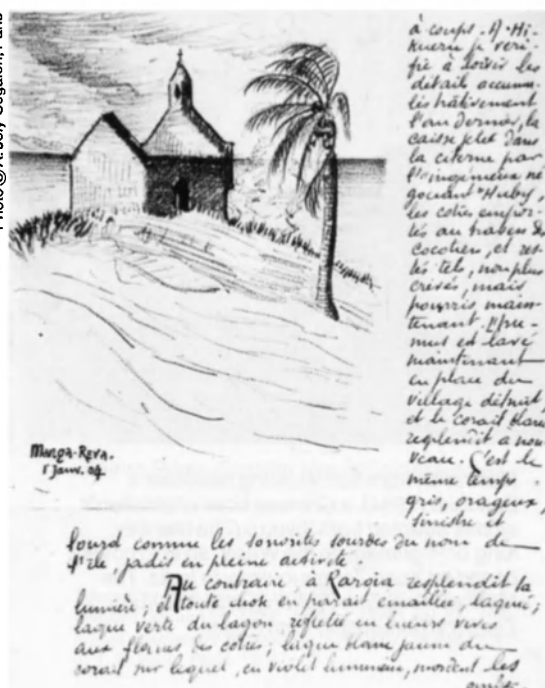 Photo © A. Joly Segalen, Paris
à coups. A Hi-
kueru je véri-
fie à loisir les
détails accumu-
lés hâtivement
l'an dernier, la
caisse jetée dans
la citerne par
l'ingénieux né
gociant "Huby",
les cotres empor-
tés au travers des
cocotiers, et res-
tés tels, non plus
crisés, mais
pourris main-
tenant. L'hu-
mus est lavé
maintenant
en place du
village détruit,
et le corail blanc
resplendit à nou
veau. C'est le
même temps
gris, orageux,
sinistre et
lourd comme les sonorités sourdes du nom de
l'île, jadis en pleine activité.
Au contraire à Raroia resplendit la
lumière ; et toute chose en paraît émaillée, laquée ;
laque verte du lagon, reflétée en lueurs vives
aux flancs des cotres ; laque blanc jaune du
corail sur lequel, en violet lumineux, mordent les
Manga-Reva.
1 Janv. 04.